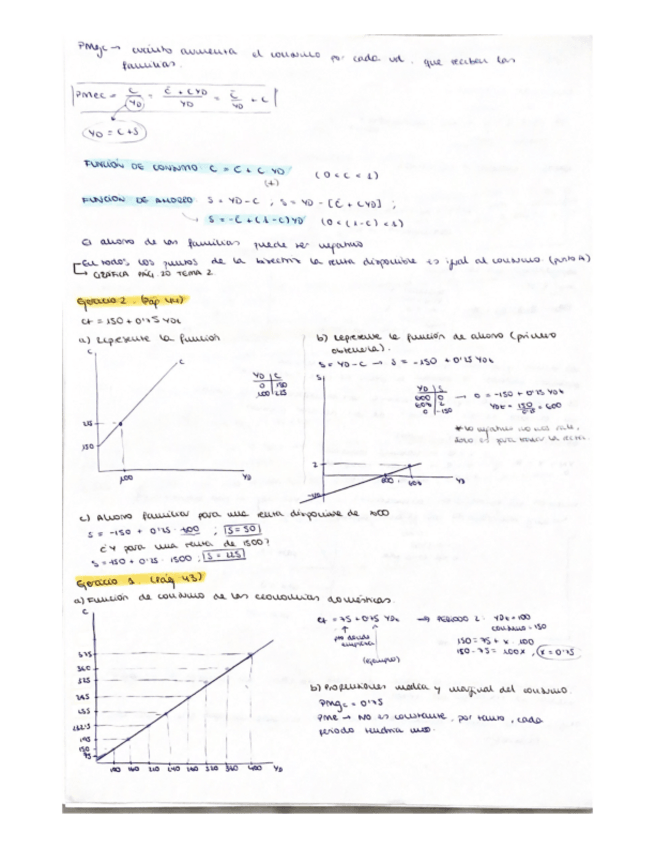 PMgc → cuánto aumenta el consumo por cada ud. que reciben las
familias.
PMec = C/YD = C̄ + cYD/YD = C̄/YD + c
YD = C+S
FUNCIÓN DE CONSUMO C = C̄ + c YD (0 < c < 1)
(+)
FUNCIÓN DE AHORRO: S = YD - C ; S = YD - [C̄ + cYD] ;
S = -C̄ + (1-c)YD (0 < (1-c) < 1)
El ahorro de las familias puede ser negativo
En todos los puntos de la bisectriz la renta disponible es igual al consumo (punto A)
GRÁFICA PÁG. 20 TEMA 2
Ejercicio 2. (Pág 44)
Ct = 150 + 0'75 YDt
a) Represente la función
C
C
YD | C
0 | 150
100 | 225
225
150
100
YD
b) Represente la función de ahorro (primero
obtenerla).
S = YD - C → S = -150 + 0'25 YDt
S
YD | S
600 | 0
608 | 2
0 | -150
→ 0 = -150 + 0'25 YDt
YDt = 150/0'25 = 600
2
600
608
YD
-150
c) Ahorro familiar para una renta disponible de 800
S = -150 + 0'25 · 800 ; S = 50
¿Y para una renta de 1500?
S = -150 + 0'25 · 1500 ; S = 225
Ejercicio 1. (Pág 43)
a) Función de consumo de las economías domésticas.
C
375
360
325
255
195
150
75
400
YD
Ct = 75 + 0'75 YDt → PERIODO 2: YDt = 100
consumo = 150
por donde
empieza
(ejemplo)
150 = 75 + x · 100
150 - 75 = 100x , x = 0'75
b) Propensiones media y marginal del consumo.
PMgc = 0'75
PMe → No es constante, por tanto, cada
periodo tendrá uno.